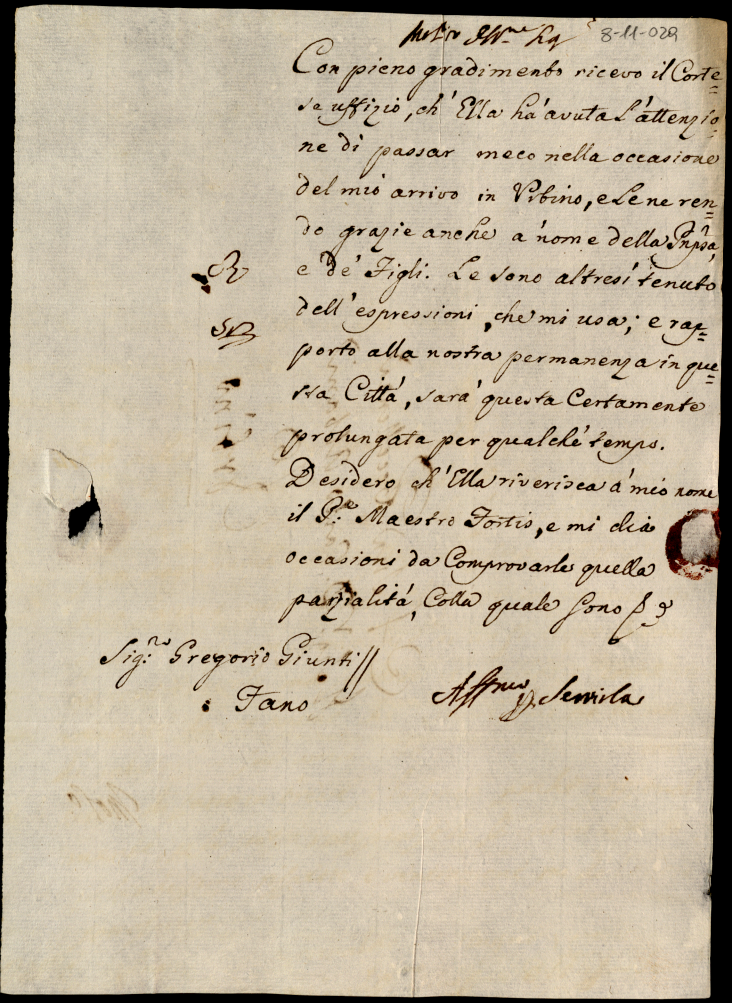 8-11-029
Molto Ill.re Sig.r
Con pieno gradimento ricevo il Corte=
se uffizio, ch' Ella ha' avuta l'attenzio=
ne di passar meco nella occasione
del mio arrivo in Urbino, e Le ne ren=
do grazie anche a' nome della Pnpsà,
e de' Figli. Le sono altresi' tenuto
dell' espressioni, che mi usa; e rap=
porto alla nostra permanenza in que=
sta Città, sarà questa Certamente
prolungata per qualche tempo.
Desidero ch' Ella riverisca a' mio nome
il P.re Maestro Fortis, e mi dia
occasioni da Comprovarle quella
parzialità, Colla quale sono
Sig.re Gregorio Giunti //
Fano
Aff.mo